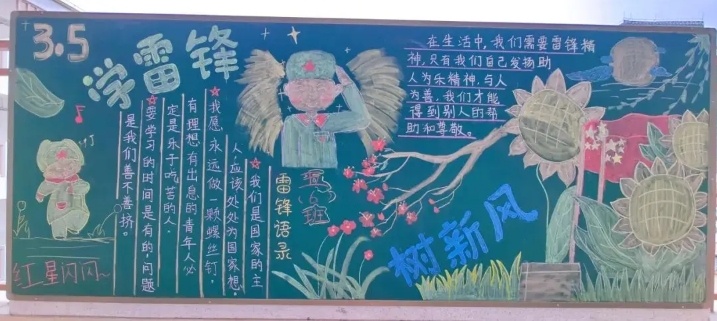 3.5
学雷锋
雷锋语录
★我们是国家的主
人,应该处处为国家想。
★我愿永远做一颗螺丝钉。
有理想有出息的青年人必
定是乐于吃苦的人.
★要学习的时间是有的,问题
是我们善不善挤。
红星闪闪~
班
在生活中,我们需要雷锋精
神,只有我们自己发扬助
人为乐精神,与人
为善,我们才能
得到别人的帮
助和尊敬。
树新风